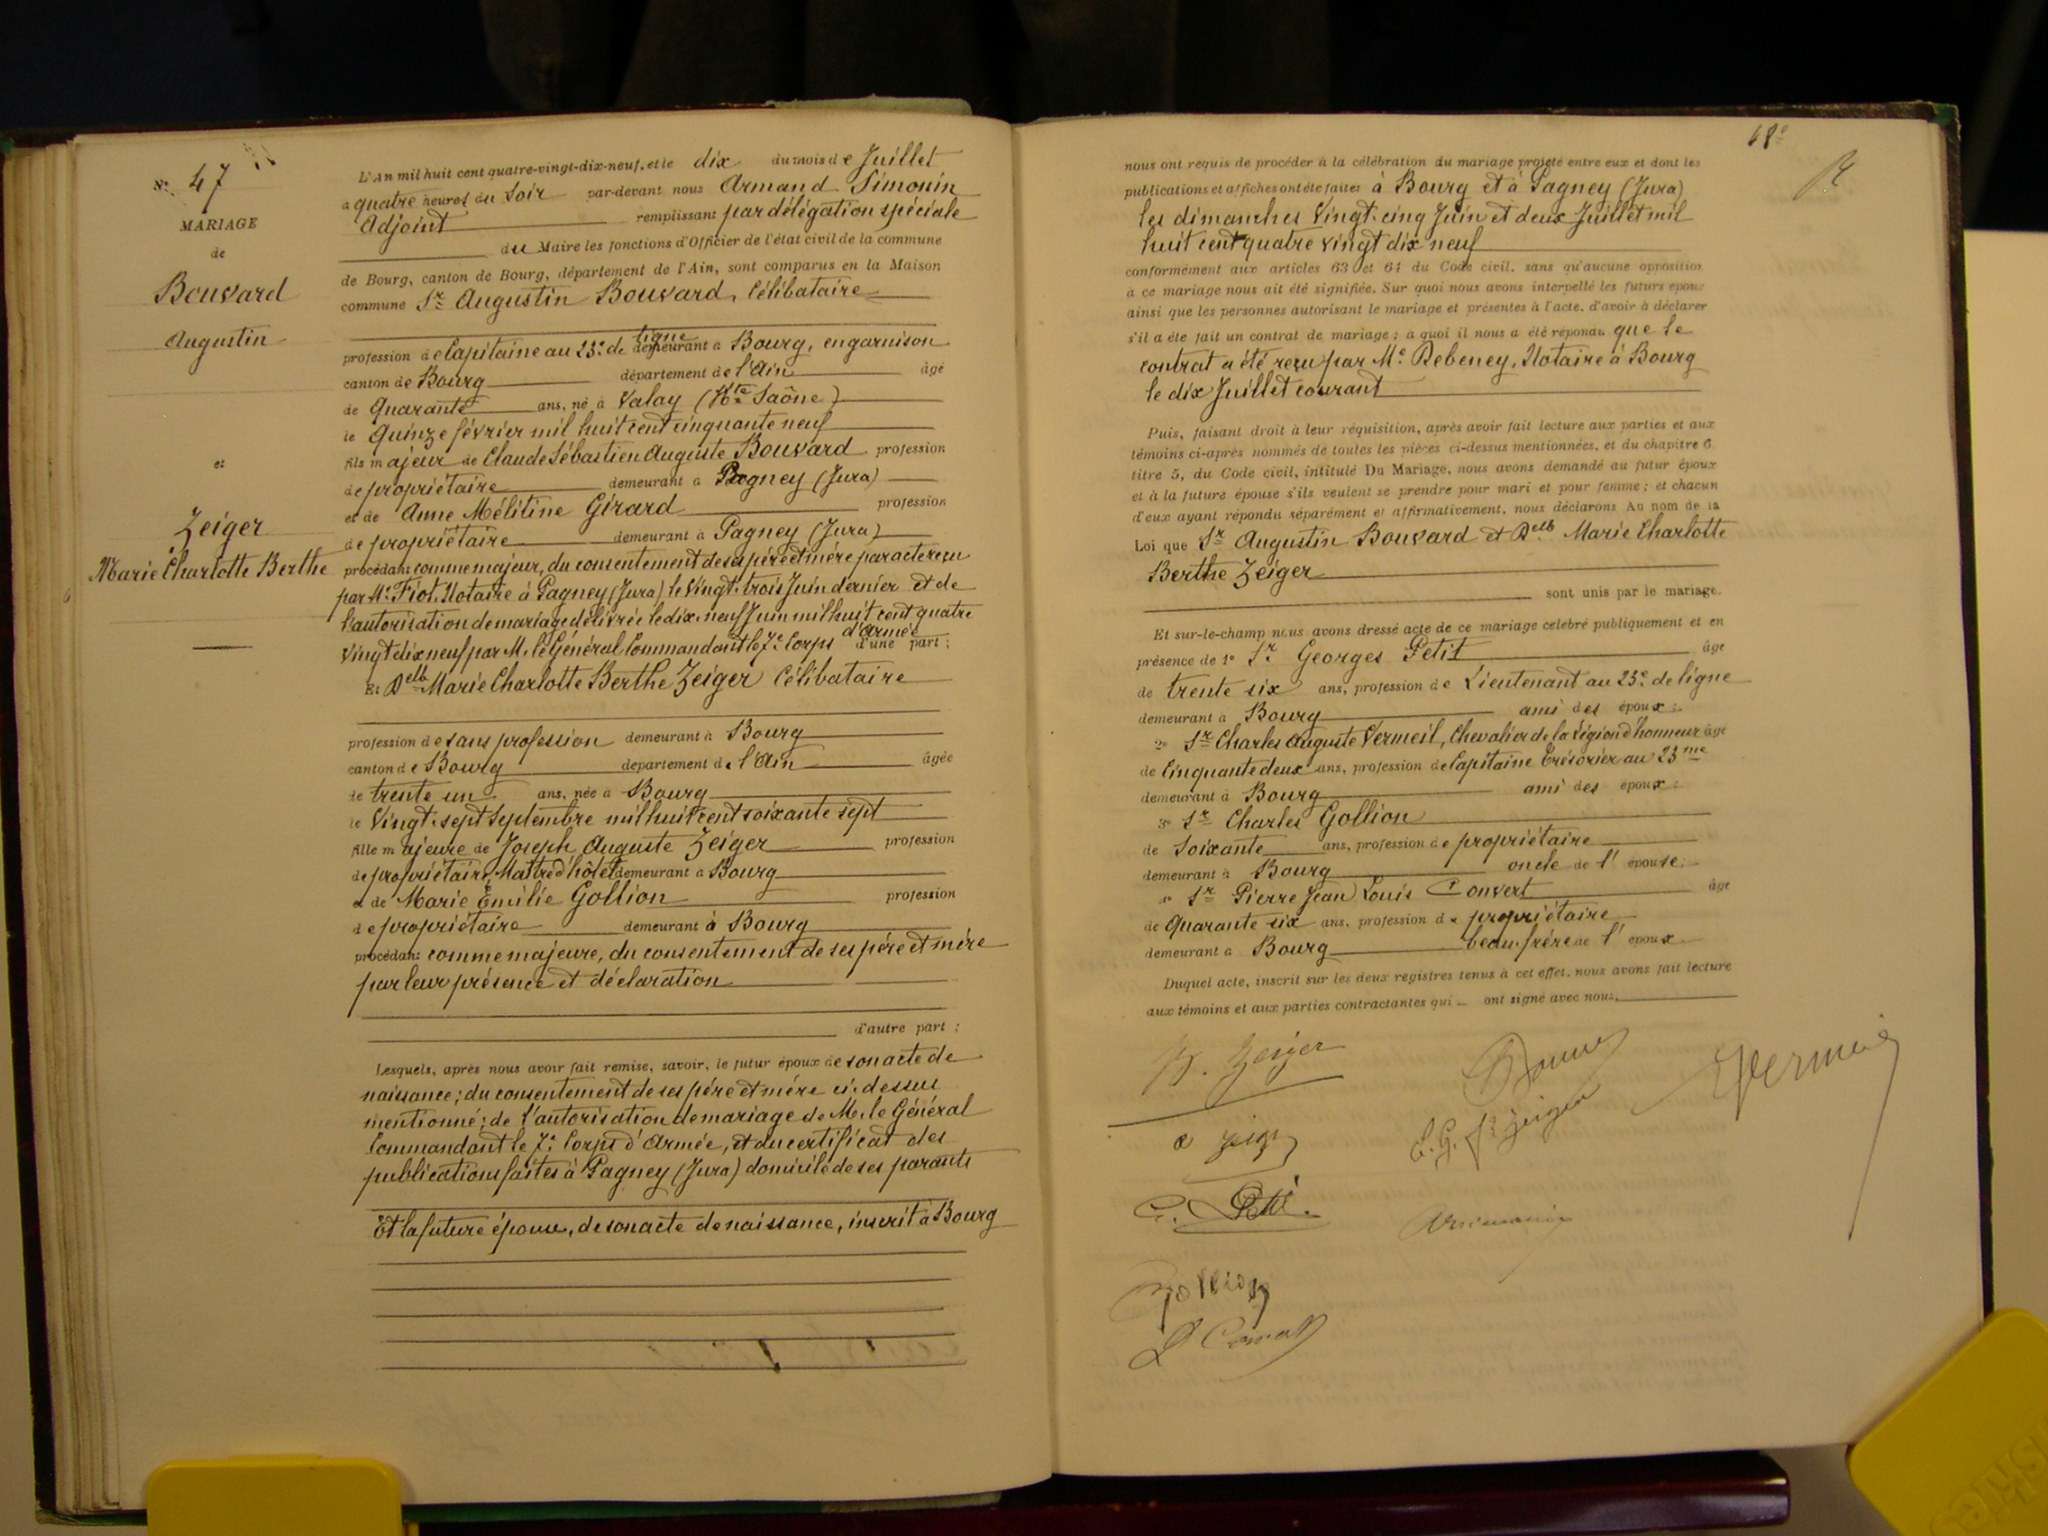 N° 47
MARIAGE
de
Bouvard
Augustin
et
Zeiger
Marie Charlotte Berthe
L'An mil huit cent quatre-vingt-dix-neuf, et le dix du mois de Juillet
a quatre heures du Soir par-devant nous Armand Simonin
Adjoint remplissant par délégation spéciale
du Maire les fonctions d'Officier de l'état civil de la commune
de Bourg, canton de Bourg, département de l'Ain, sont comparus en la Maison
commune Sr Augustin Bouvard, Célibataire
profession de Capitaine au 23e de ligne demeurant à Bourg, en garnison
canton de Bourg département de l'Ain âgé
de Quarante ans, né à Valay (Hte Saône)
le Quinze février mil huit cent cinquante neuf
fils majeur de Claude Sébastien Auguste Bouvard profession
de propriétaire demeurant à Pagney (Jura)
et de Anne Mélitine Girard profession
de propriétaire demeurant à Pagney (Jura)
procédant comme majeur, du consentement de ses père et mère par acte reçu
par Me Fiot, Notaire à Pagney (Jura) le Vingt-trois Juin dernier et de
l'autorisation de mariage délivrée le dix-neuf Juin mil huit cent quatre
Vingt dix neuf par M. le Général Commandant le 7e Corps d'Armée d'une part;
Et Delle Marie Charlotte Berthe Zeiger Célibataire
profession de sans profession demeurant à Bourg
canton de Bourg département de l'Ain âgée
de trente un ans, née à Bourg
le Vingt-sept Septembre mil huit cent soixante sept
fille majeure de Joseph Auguste Zeiger profession
de propriétaire, Maître d'hôtel demeurant à Bourg
et de Marie Emilie Gollion profession
de propriétaire demeurant à Bourg
procédant comme majeure, du consentement de ses père et mère
par leur présence et déclaration
d'autre part;
Lesquels, après nous avoir fait remise, savoir, le futur époux de son acte de
naissance; du consentement de ses père et mère ci-dessus
mentionné; de l'autorisation de mariage de M. le Général
Commandant le 7e Corps d'Armée, et du certificat des
publications faites à Pagney (Jura) domicile de ses parents
Et la future épouse, de son acte de naissance, inscrit à Bourg
48e
nous ont requis de procéder à la célébration du mariage projeté entre eux et dont les
publications et affiches ont été faites à Bourg et à Pagney (Jura)
les dimanches Vingt-cinq Juin et deux Juillet mil
huit cent quatre vingt dix neuf
conformément aux articles 63 et 64 du Code civil, sans qu'aucune opposition
à ce mariage nous ait été signifiée. Sur quoi nous avons interpellé les futurs époux
ainsi que les personnes autorisant le mariage et présentes à l'acte, d'avoir à déclarer
s'il a été fait un contrat de mariage; à quoi il nous a été répondu que le
contrat a été reçu par Me Debeney, Notaire à Bourg
le dix Juillet courant
Puis, faisant droit à leur réquisition, après avoir fait lecture aux parties et aux
témoins ci-après nommés de toutes les pièces ci-dessus mentionnées, et du chapitre 6,
titre 5, du Code civil, intitulé Du Mariage, nous avons demandé au futur époux
et à la future épouse s'ils veulent se prendre pour mari et pour femme; et chacun
d'eux ayant répondu séparément et affirmativement, nous déclarons Au nom de la
Loi que Sr Augustin Bouvard et Delle Marie Charlotte
Berthe Zeiger
sont unis par le mariage.
Et sur-le-champ nous avons dressé acte de ce mariage célébré publiquement et en
présence de 1° Sr Georges Petit âgé
de trente six ans, profession de Lieutenant au 23e de ligne
demeurant à Bourg ami des époux;
2° Sr Charles Auguste Vermeil, Chevalier de la Légion d'honneur âgé
de Cinquante deux ans, profession de Capitaine Trésorier au 23me
demeurant à Bourg ami des époux;
3° Sr Charles Gollion
de Soixante ans, profession de propriétaire
demeurant à Bourg oncle de l'épouse;
4° Sr Pierre Jean Louis Convert âgé
de Quarante six ans, profession de propriétaire
demeurant à Bourg beau-frère de l'époux
Duquel acte, inscrit sur les deux registres tenus à cet effet, nous avons fait lecture
aux témoins et aux parties contractantes qui ont signé avec nous,
B. Zeiger
Vermeil
G. Petit
Gollion
L Convert